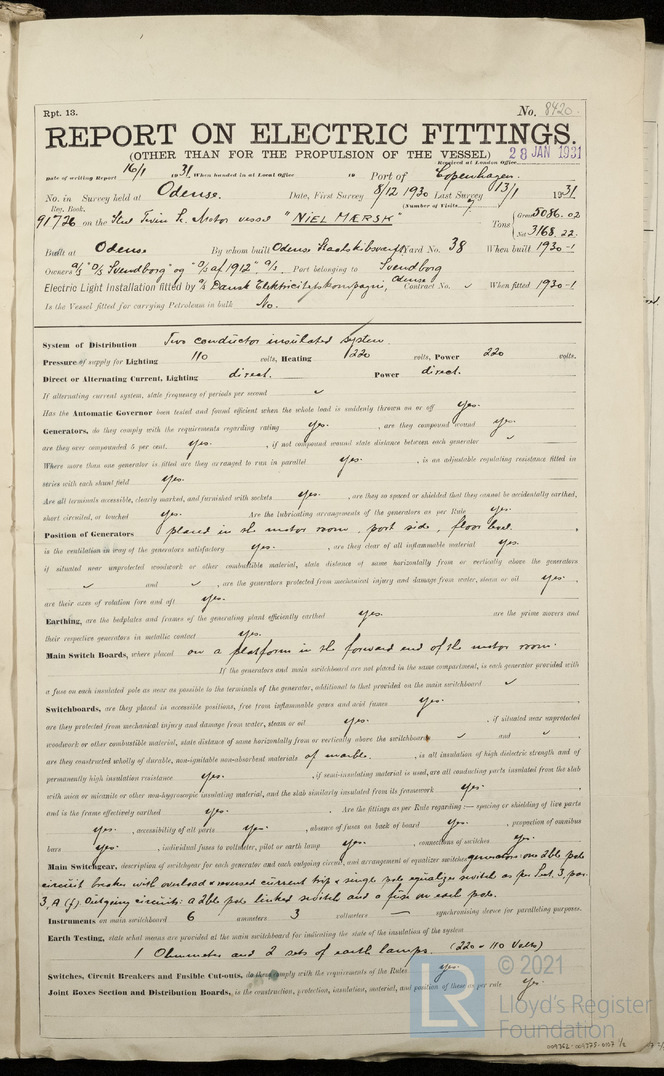 Rpt. 13.
No. 8420.
REPORT ON ELECTRIC FITTINGS.
(OTHER THAN FOR THE PROPULSION OF THE VESSEL)
Received at London Office
28 JAN 1931
Date of writing Report 16/1 1931. When handed in at Local Office 19 Port of Copenhagen.
No. in Survey held at Odense. Date, First Survey 8/12 1930 Last Survey 13/1 1931
Reg. Book. (Number of Visits 7.
91726 on the Steel Twin Sc. Motor vessel "NIEL MÆRSK" Tons { Gross 5086.02
Net 3168.22.
Built at Odense By whom built Odense Staalskibsværft Yard No. 38 When built 1930-1
Owners A/S "D/S Svendborg" og "D/S af 1912", A/S. Port belonging to Svendborg
Electric Light Installation fitted by A/S Dansk Elektricitetskompagni, Odense Contract No. ✓ When fitted 1930-1
Is the Vessel fitted for carrying Petroleum in bulk No.
System of Distribution Two conductor insulated system.
Pressure of supply for Lighting 110 volts, Heating 220 volts, Power 220 volts.
Direct or Alternating Current, Lighting direct. Power direct.
If alternating current system, state frequency of periods per second ✓
Has the Automatic Governor been tested and found efficient when the whole load is suddenly thrown on or off yes.
Generators, do they comply with the requirements regarding rating yes. , are they compound wound yes.
are they over compounded 5 per cent. yes. , if not compound wound state distance between each generator ✓
Where more than one generator is fitted are they arranged to run in parallel yes. , is an adjustable regulating resistance fitted in
series with each shunt field yes.
Are all terminals accessible, clearly marked, and furnished with sockets yes. , are they so spaced or shielded that they cannot be accidentally earthed,
short circuited, or touched yes. Are the lubricating arrangements of the generators as per Rule yes.
Position of Generators placed in the motor room, port side, floor level.
is the ventilation in way of the generators satisfactory yes. , are they clear of all inflammable material yes.
if situated near unprotected woodwork or other combustible material, state distance of same horizontally from or vertically above the generators
✓ and ✓ , are the generators protected from mechanical injury and damage from water, steam or oil yes.
are their axes of rotation fore and aft yes.
Earthing, are the bedplates and frames of the generating plant efficiently earthed yes. are the prime movers and
their respective generators in metallic contact yes.
Main Switch Boards, where placed on a platform in the forward end of the motor room.
If the generators and main switchboard are not placed in the same compartment, is each generator provided with
a fuse on each insulated pole as near as possible to the terminals of the generator, additional to that provided on the main switchboard ✓
Switchboards, are they placed in accessible positions, free from inflammable gases and acid fumes yes.
are they protected from mechanical injury and damage from water, steam or oil yes. , if situated near unprotected
woodwork or other combustible material, state distance of same horizontally from or vertically above the switchboards ✓ and ✓
are they constructed wholly of durable, non-ignitable non-absorbent materials of marble. , is all insulation of high dielectric strength and of
permanently high insulation resistance yes. , if semi-insulating material is used, are all conducting parts insulated from the slab
with mica or micanite or other non-hygroscopic insulating material, and the slab similarly insulated from its framework yes.
and is the frame effectively earthed yes. Are the fittings as per Rule regarding:— spacing or shielding of live parts
yes. , accessibility of all parts yes. , absence of fuses on back of board yes. , proportion of omnibus
bars yes. , individual fuses to voltmeter, pilot or earth lamp yes. , connections of switches yes.
Main Switchgear, description of switchgear for each generator and each outgoing circuit, and arrangement of equalizer switches generators: one dble pole
circuit breaker with overload & reversed current trip & single pole equalizer switch as per Sect. 3, par.
3, A (f). Outgoing circuits: a dble pole linked switch and a fuse on each pole.
Instruments on main switchboard 6 ammeters 3 voltmeters — synchronising device for paralleling purposes.
Earth Testing, state what means are provided at the main switchboard for indicating the state of the insulation of the system
1 Ohmmeter and 2 sets of earth lamps. (220 & 110 Volts)
Switches, Circuit Breakers and Fusible Cut-outs, do these comply with the requirements of the Rules yes.
Joint Boxes Section and Distribution Boards, is the construction, protection, insulation, material, and position of these as per rule yes.
LR
© 2021
Lloyd's Register
Foundation
009362-009375-0107 1/2